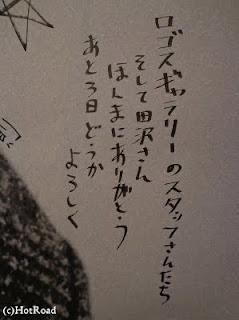 ロゴスギャラリーのスタッフさんたち
そして田沢さん
ほんまにありがとう
あと3日どうか
よろしく
(c)HotRoad